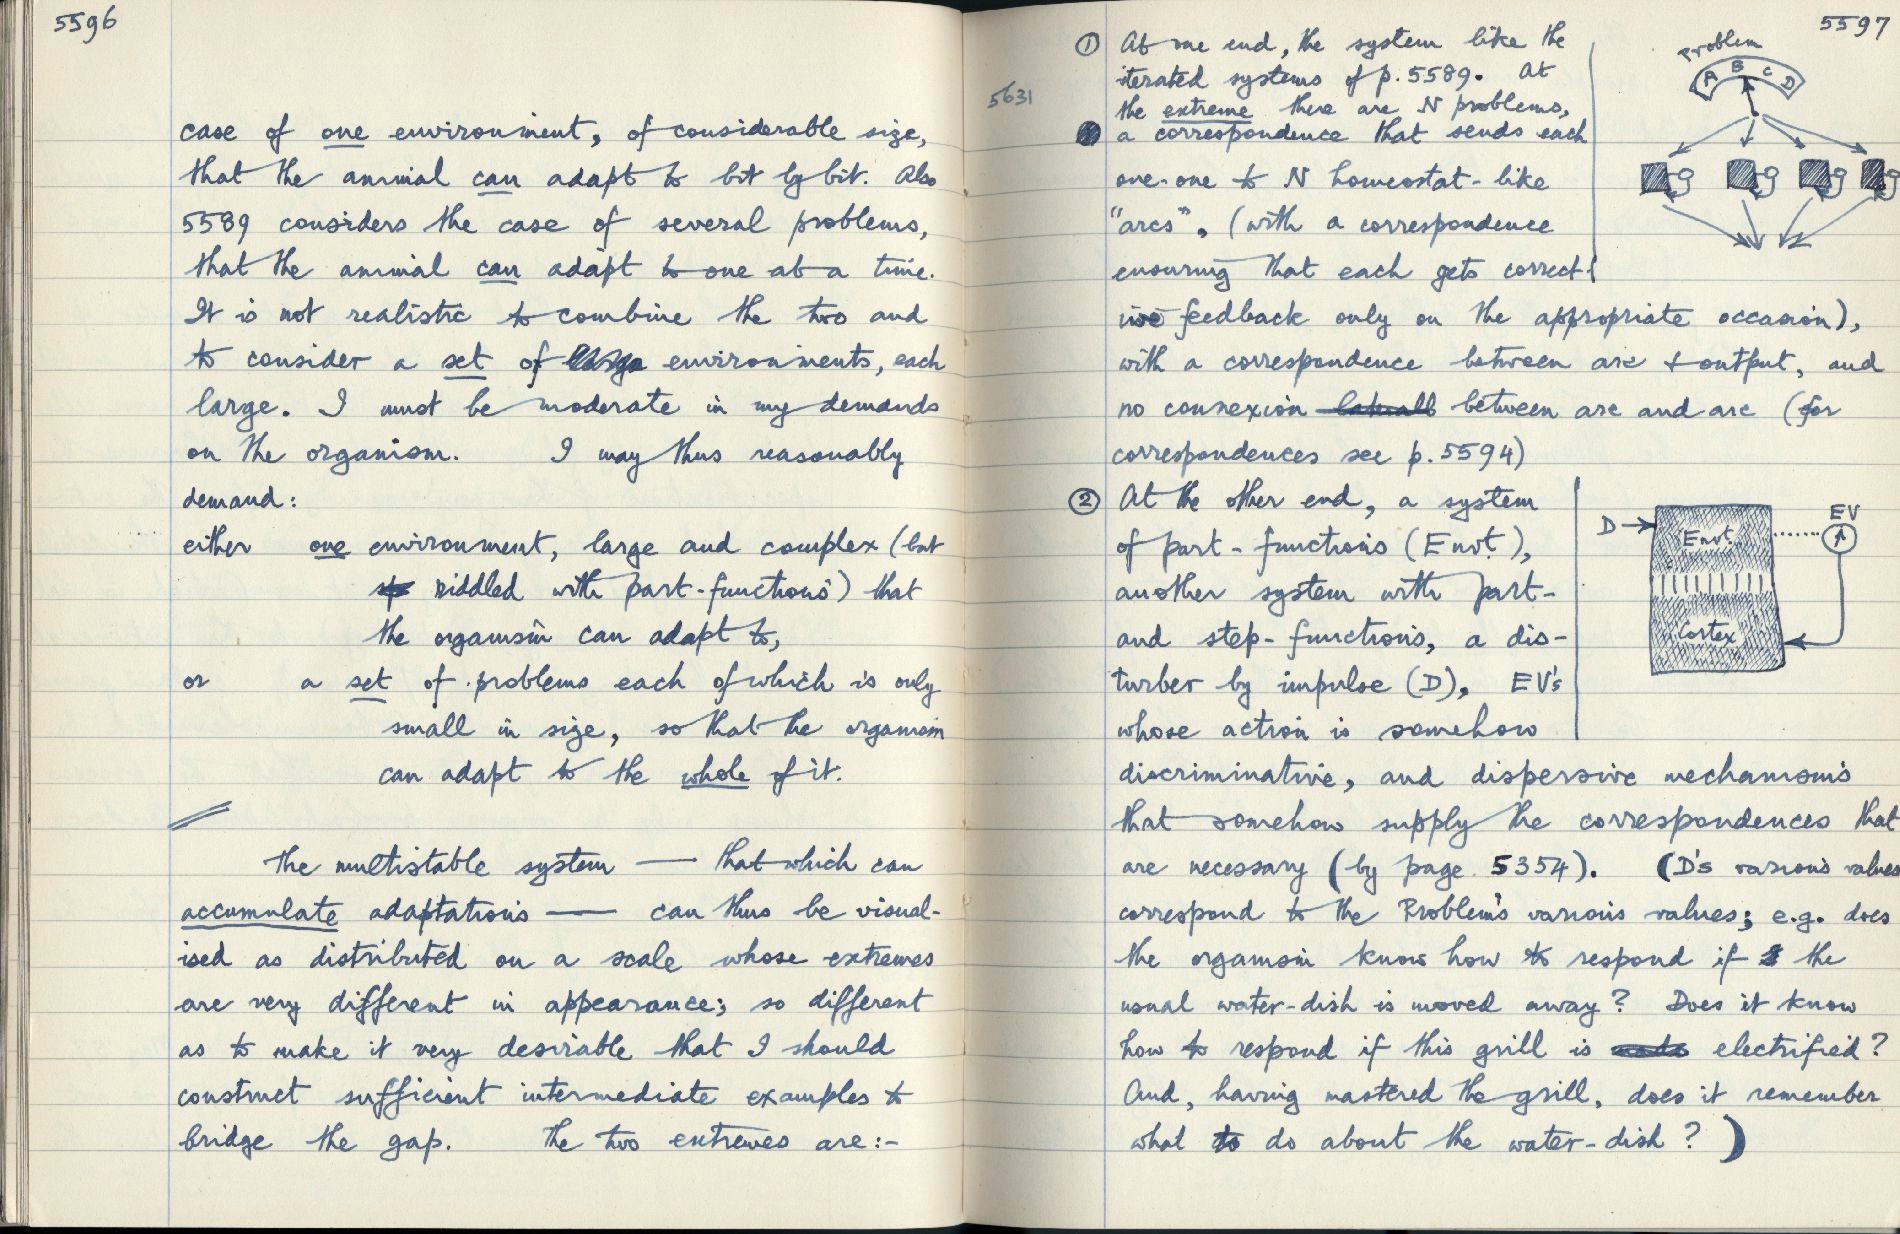 5596
case of one environment, of considerable size,
that the animal can adapt to bit by bit. Also
5589 considers the case of several problems,
that the animal can adapt to one at a time.
It is not realistic to combine the two and
to consider a set of large environments, each
large. I must be moderate in my demands
on the organism. I may thus reasonably
demand:
either one environment, large and complex (but
riddled with part-functions) that
the organism can adapt to,
or a set of problems each of which is only
small in size, so that the organism
can adapt to the whole of it.
The multistable system — that which can
accumulate adaptations — can thus be visual-
ised as distributed on a scale whose extremes
are very different in appearance; so different
as to make it very desirable that I should
construct sufficient intermediate examples to
bridge the gap. The two extremes are:-
5597
5631
① At one end, the system like the
iterated systems of p. 5589. At
the extreme there are N problems,
a correspondence that sends each
one-one to N homeostat-like
"arcs", (with a correspondence
ensuring that each gets correct-
ive feedback only on the appropriate occasion),
with a correspondence between arc & output, and
no connexion between arc and arc (for
correspondences see p. 5594)
Problem
A B C D
② At the other end, a system
of part-functions (Envt.),
another system with part-
and step-functions, a dis-
turber by impulse (D), EV's
whose action is somehow
discriminative, and dispersive mechanisms
that somehow supply the correspondences that
are necessary (by page 5354). (D's various values
correspond to the Problem's various values; e.g. does
the organism know how to respond if the
usual water-dish is moved away? Does it know
how to respond if this grill is electrified?
And, having mastered the grill, does it remember
what to do about the water-dish?)
D
Envt.
EV
Cortex